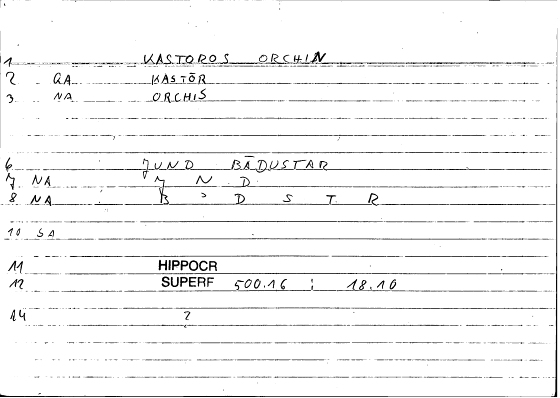 1 KASTOROS ORCHIN
2 QA KASTŌR
3 NA ORCHIS
6 ǦUND BĀDUSTAR
7 NA Ǧ N D
8 NA B ' D S T R
10 SA
11 HIPPOCR
12 SUPERF 500.16 ; 18.10
14 2